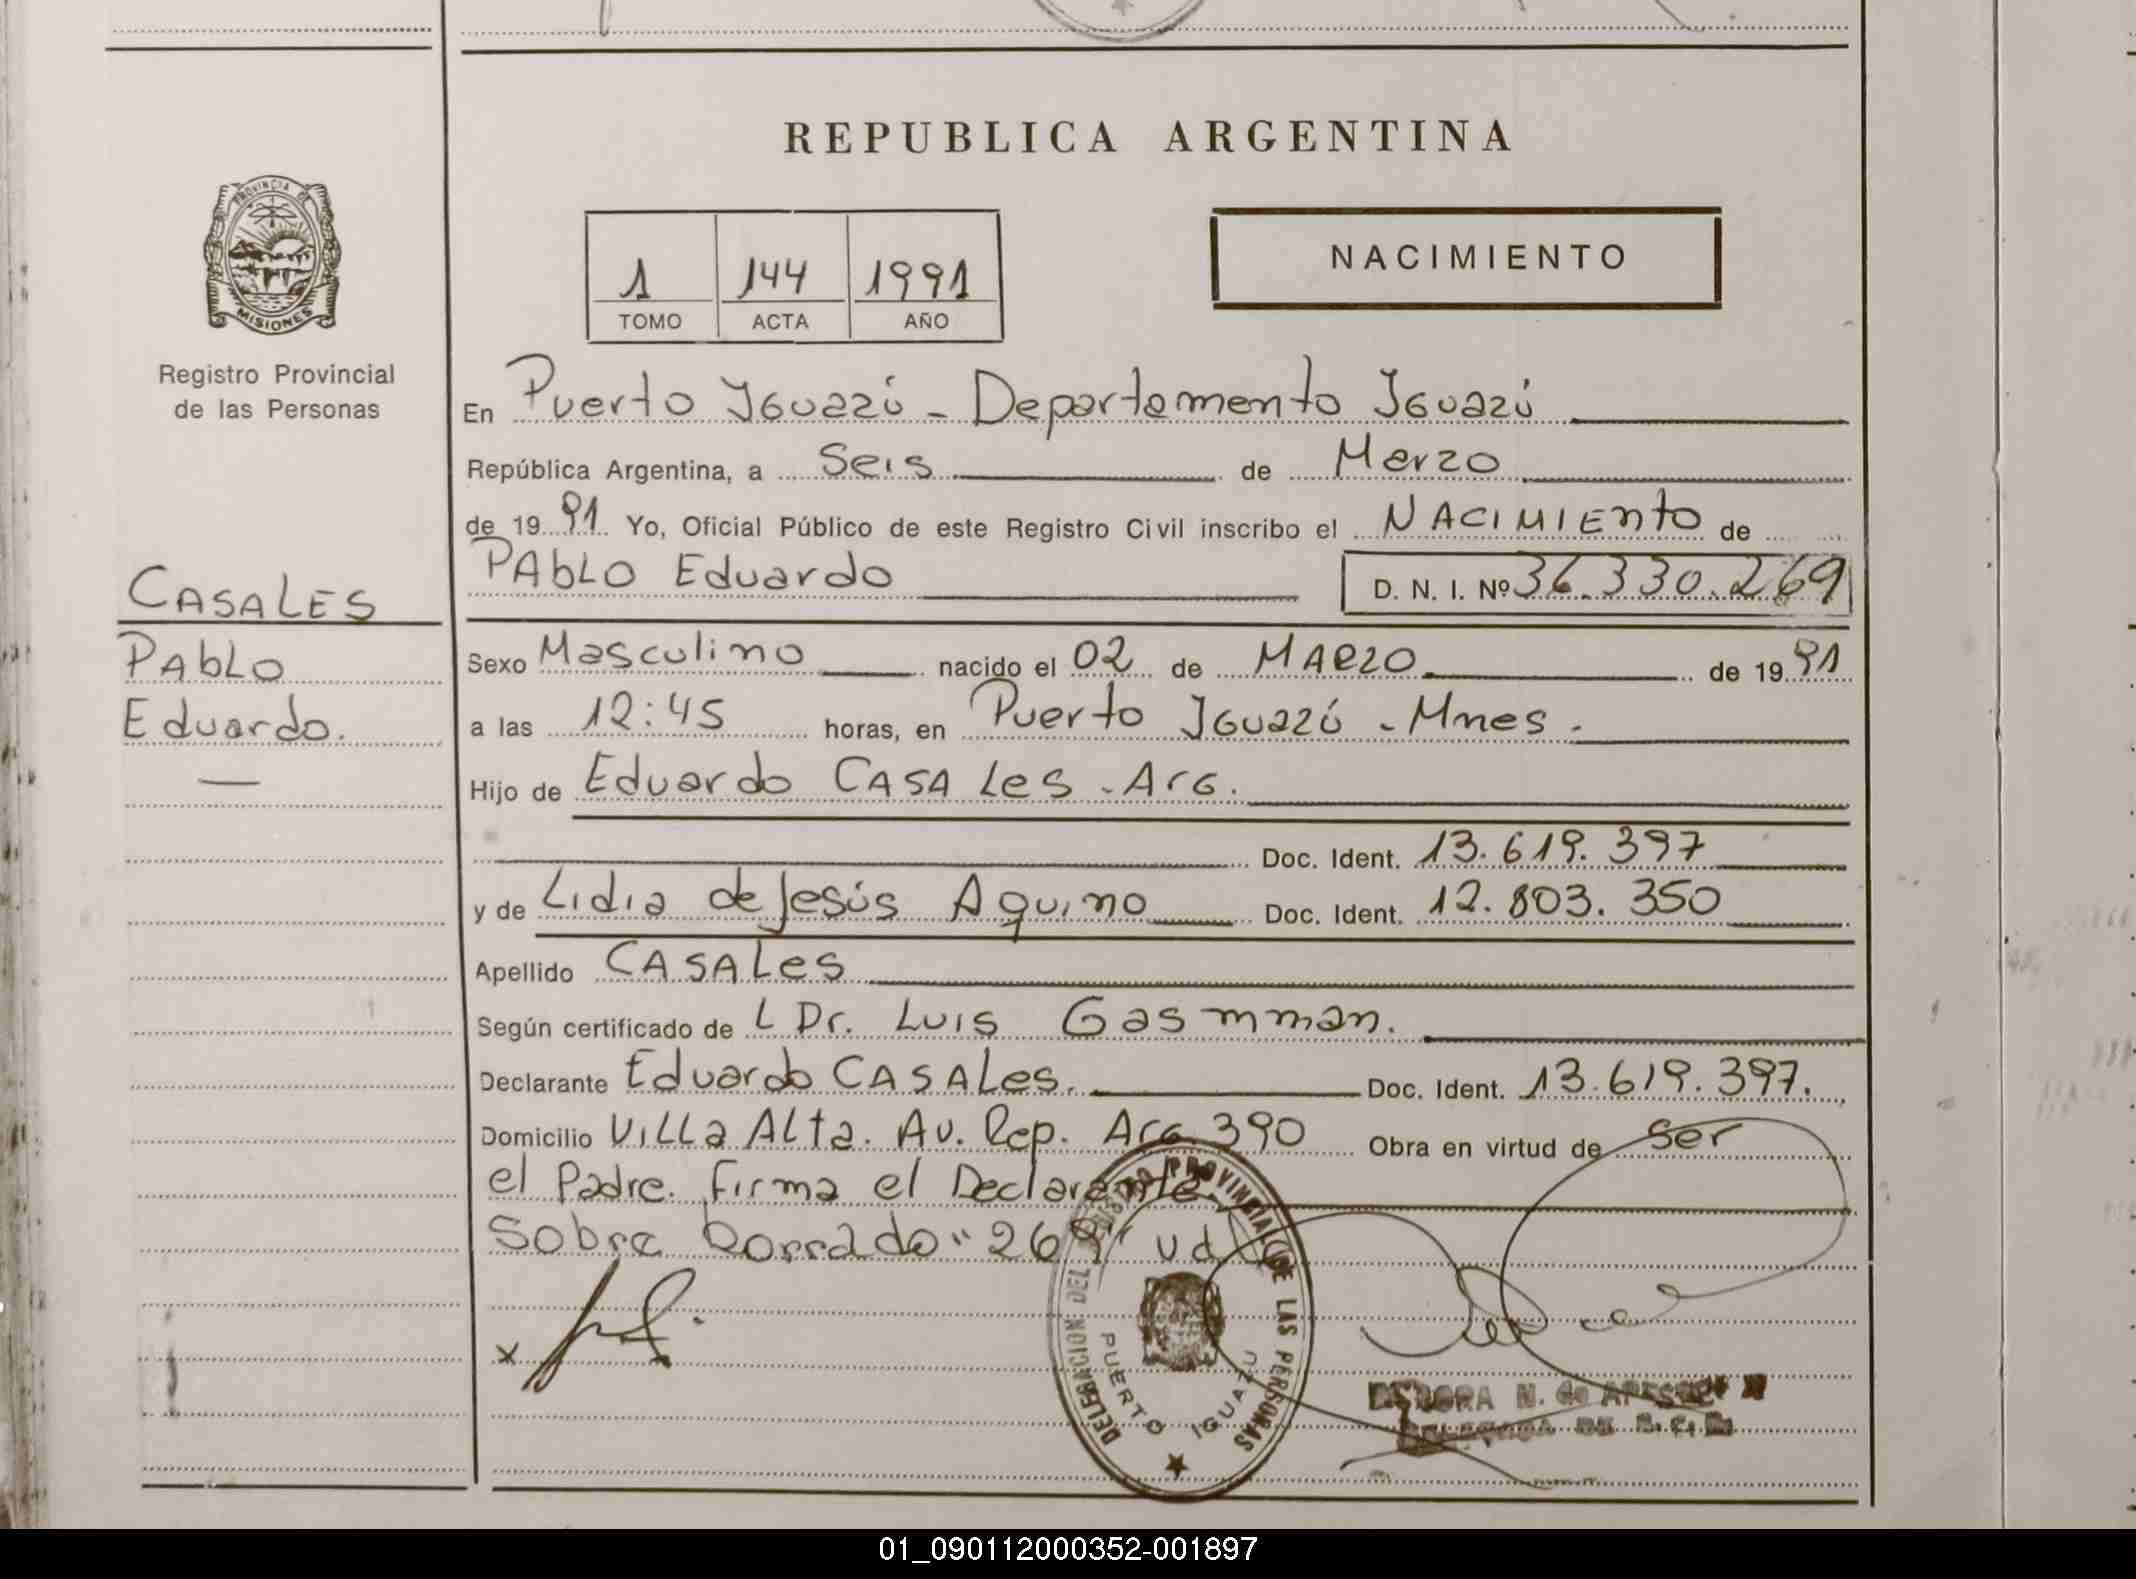 REPUBLICA ARGENTINA
PROVINCIA DE
MISIONES
Registro Provincial
de las Personas
1 144 1991
TOMO ACTA AÑO
NACIMIENTO
En Puerto Iguazú - Departamento Iguazú
República Argentina, a Seis de Marzo
de 1991 Yo, Oficial Público de este Registro Civil inscribo el NACIMIENTO de
PAbLO Eduardo D. N. I. Nº 36.330.269
CASALES
PAbLO
Eduardo.
Sexo Masculino nacido el 02 de MARZO de 1991
a las 12:45 horas, en Puerto Iguazú - Mnes.
Hijo de Eduardo CASALes - Arg.
Doc. Ident. 13.619.397
y de Lidia de Jesús Aquino Doc. Ident. 12.803.350
Apellido CASALes
Según certificado de L Dr. Luis Gasmman.
Declarante Eduardo CASALes. Doc. Ident. 13.619.397.
Domicilio Villa Alta. Av. Rep. Arg. 390 Obra en virtud de Ser
el Padre. Firma el Declarante
Sobre borrado "269"
x
DELEGACION DEL REGISTRO PROVINCIAL DE LAS PERSONAS
PUERTO IGUAZU
N. de
01_090112000352-001897